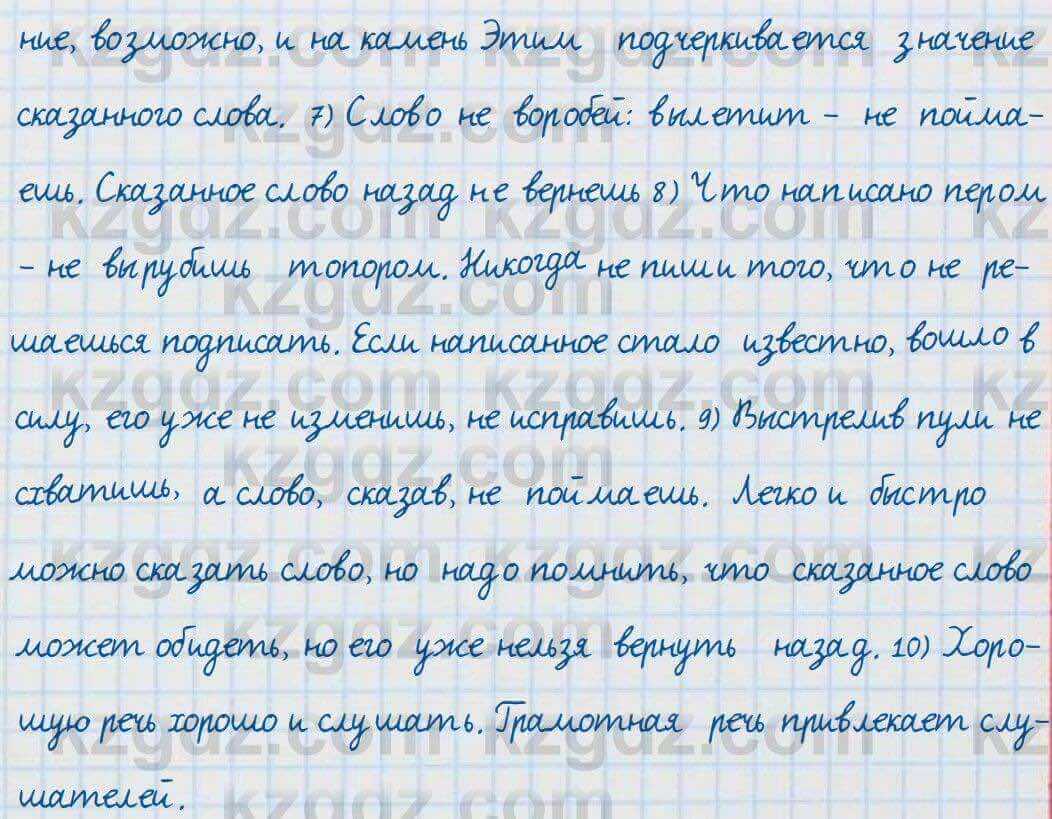 ние, возможно, и на камень Этим подчеркивается значение
сказанного слова. 7) Слово не воробей: вылетит - не пойма-
ешь. Сказанное слово назад не вернешь 8) Что написано пером
- не вырубишь топором. Никогда не пиши того, что не ре-
шаешься подписать. Если написанное стало известно, вошло в
силу, его уже не изменишь, не исправишь. 9) Выстрелив пули не
схватишь, а слово, сказав, не поймаешь. Легко и быстро
можно сказать слово, но надо помнить, что сказанное слово
может обидеть, но его уже нельзя вернуть назад. 10) Хоро-
шую речь хорошо и слушать. Грамотная речь привлекает слу-
шателей.
kzgdz.com